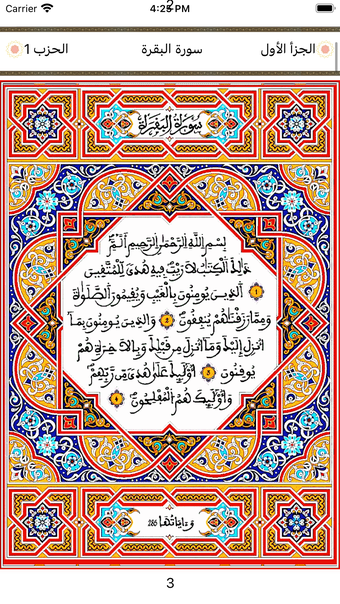 Carrier 4:25 PM
الجزأ الأول سورة البقرة الحزب 1
سورة البقرة
بسم الله الرحمن الرحيم ألم
ذلك الكتاب لا ريب فيه هدى للمتقين
1 الذين يومنون بالغيب ويقيمون الصلوة
ومما رزقناهم ينفقون 2 والذين يومنون بما
أنزل إليك وما أنزل من قبلك وبالآخرة هم
يوقنون 3 أولئك على هدى من ربهم
وأولئك هم المفلحون 4
وءاياتها 286
3